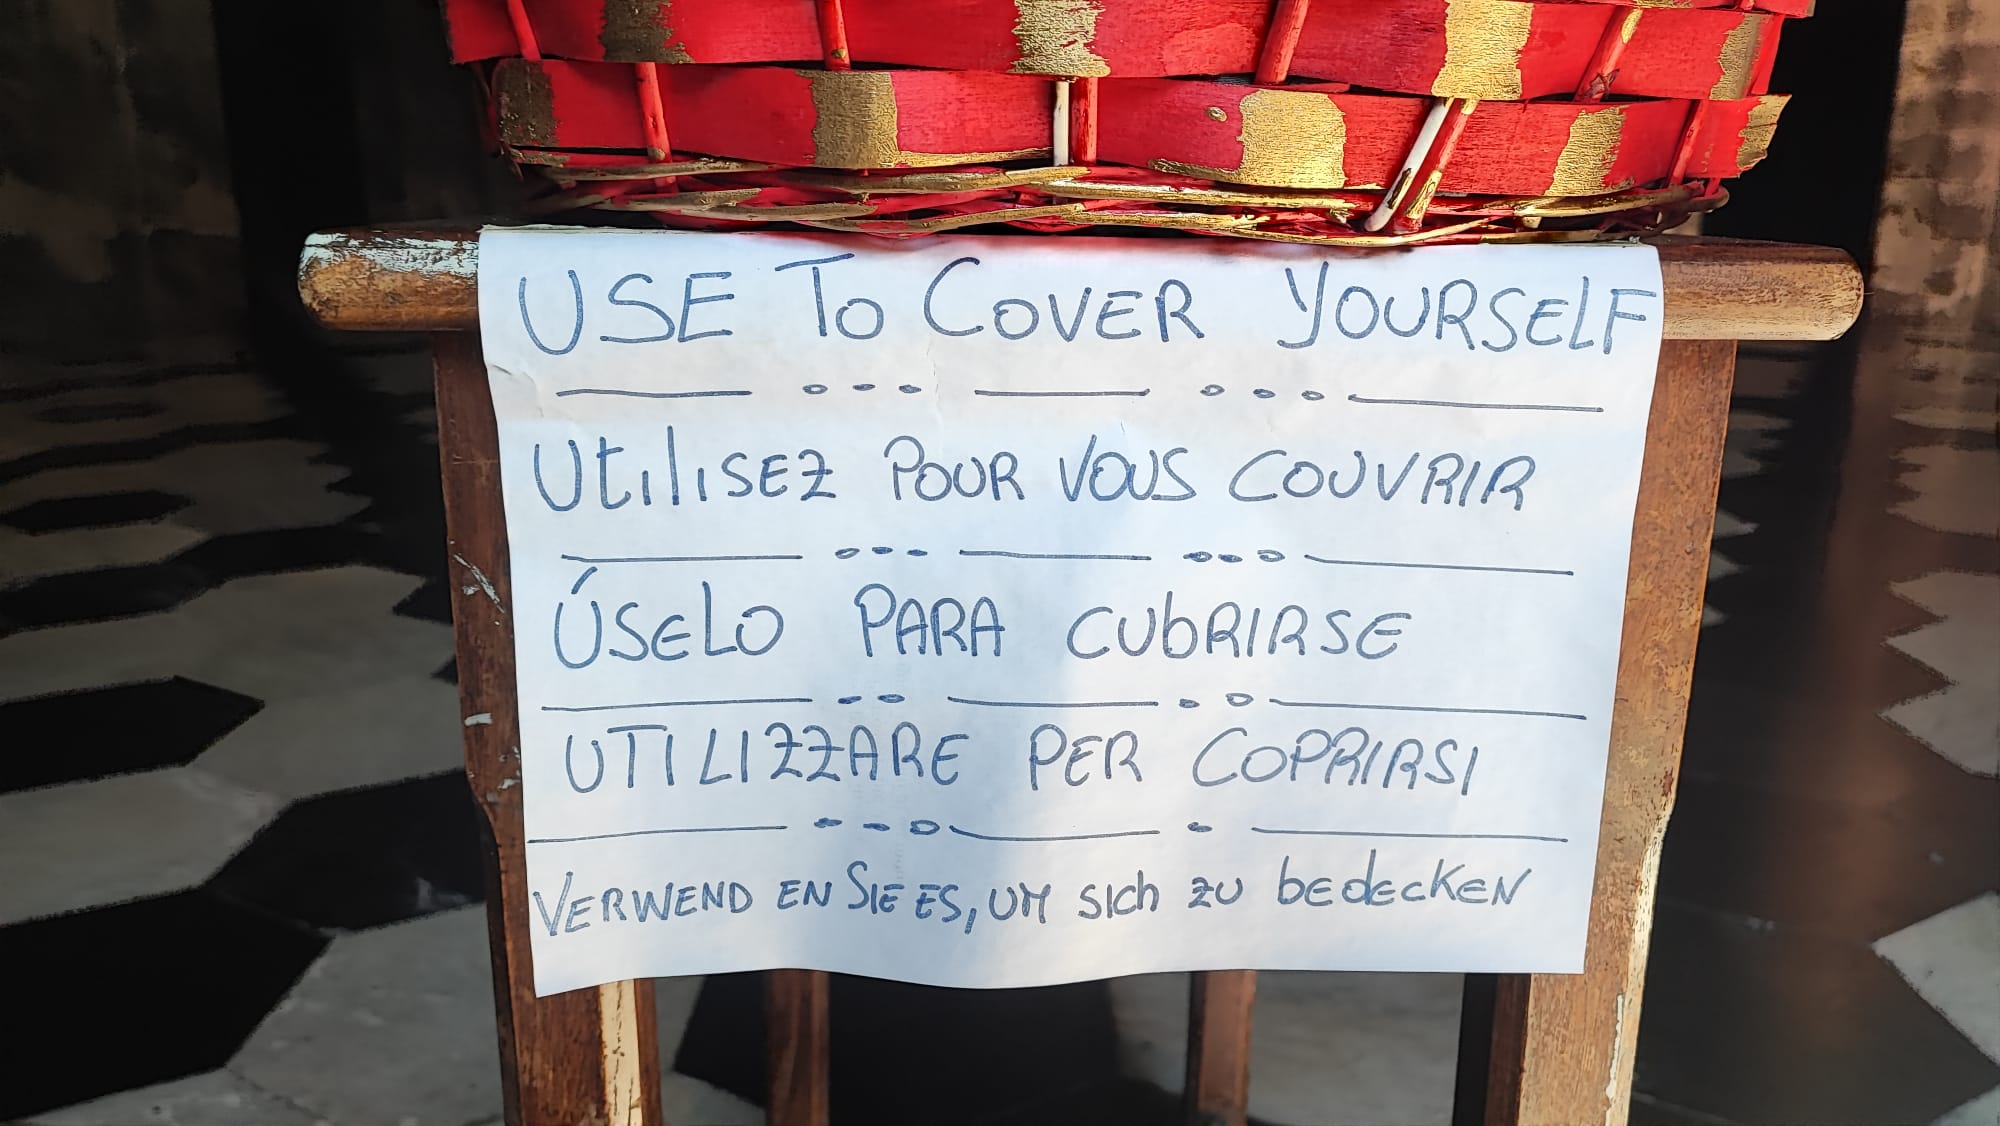 USE TO COVER YOURSELF
UtilisEZ POUR VOUS COUVRIR
ÚSELO PARA CUbRIRSE
UTILIZZARE PER COPRIRSI
VERWEND EN SIE ES, UM SICh ZU bEdECKEN